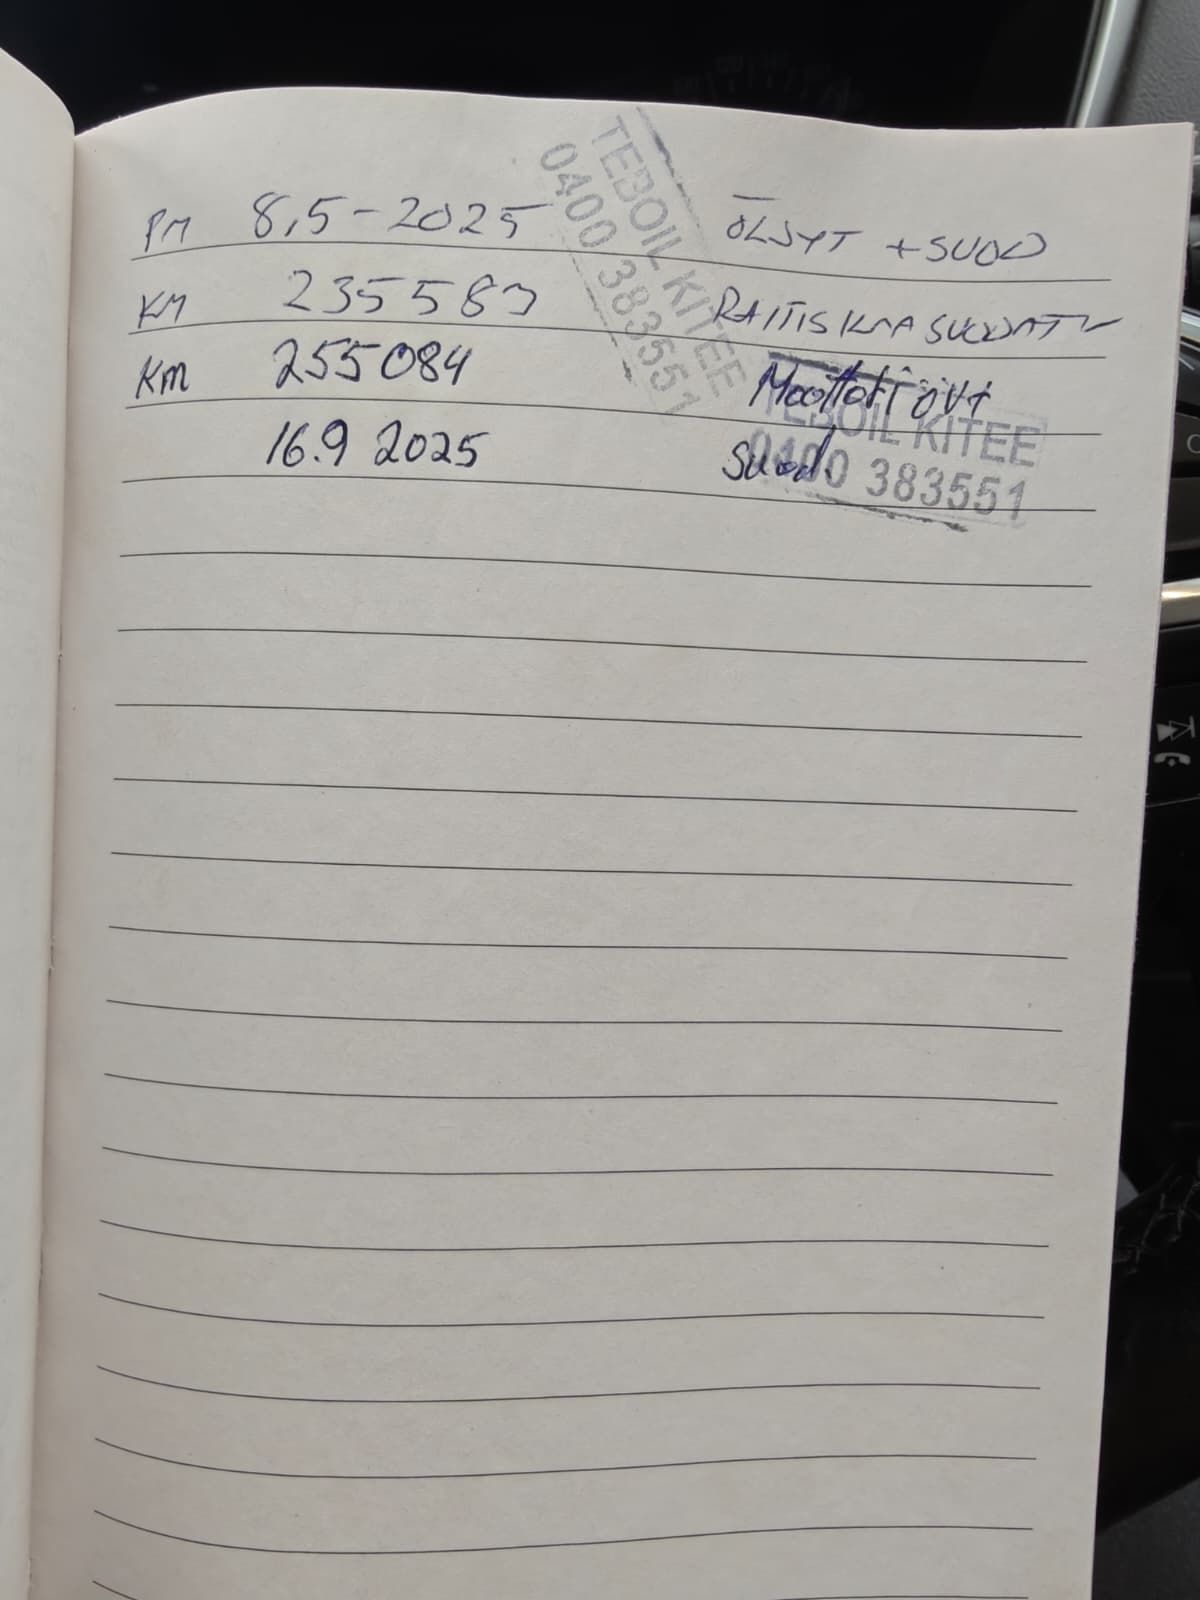 PM 8,5-2025 ÖLJYT + SUOD
KM 235583 RAITISILMA SUODAT
KM 255084 Moottoriöljyt
16.9 2025 suod.
TEBOIL KITEE
0400 383551
TEBOIL KITEE
0400 383551